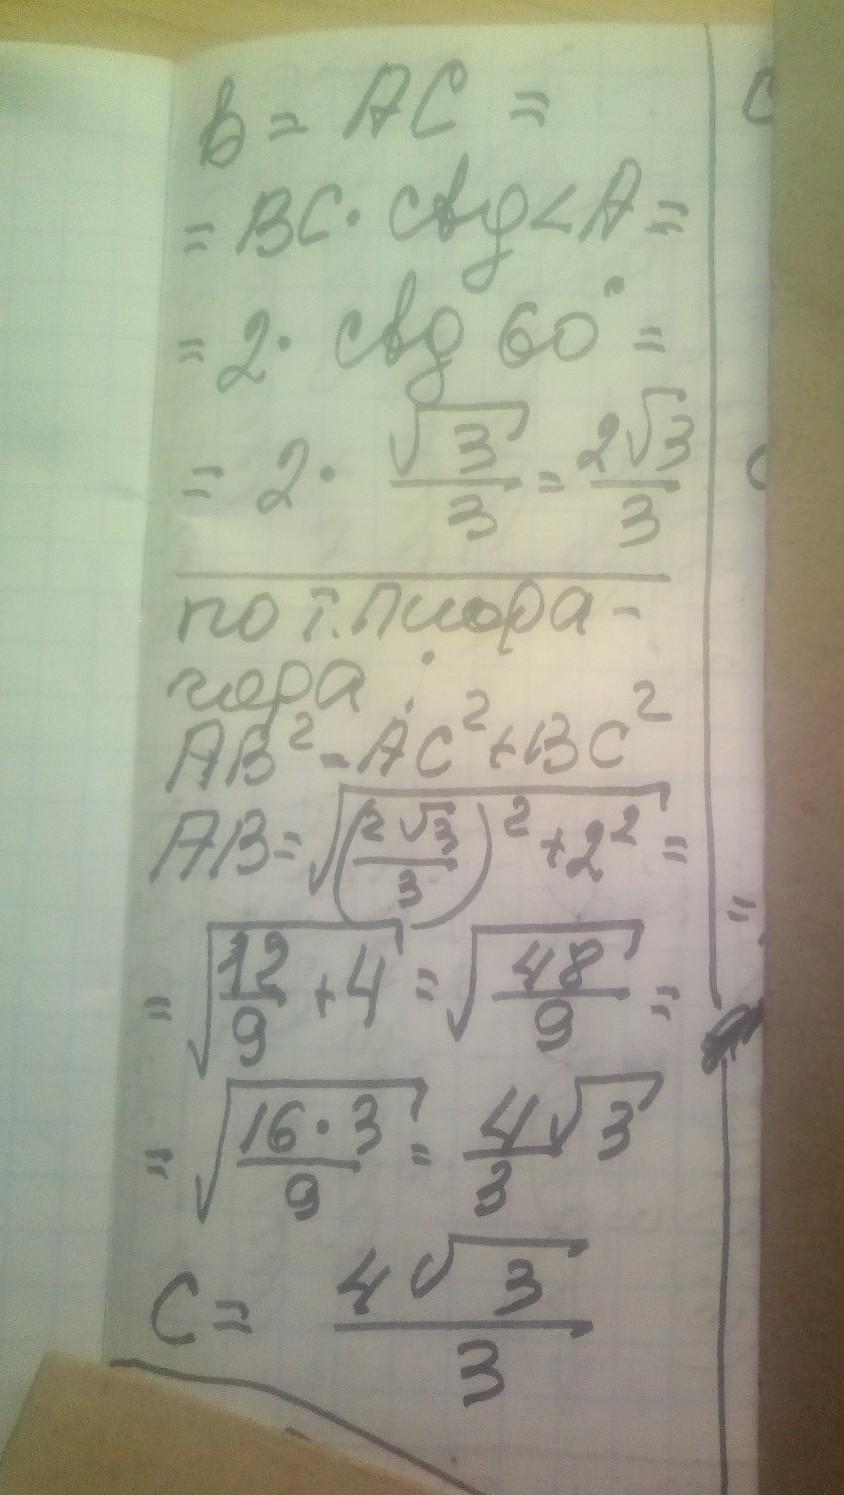 b = AC =
= BC · ctg<A =
= 2 · ctg 60° =
= 2 · √3/3 = 2√3/3
по т. Пифа-
гора :
AB² = AC² + BC²
AB = √((2√3/3)² + 2²) =
= √(12/9 + 4) = √(48/9) =
= √(16·3/9) = 4/3 √3
C = 4√3/3